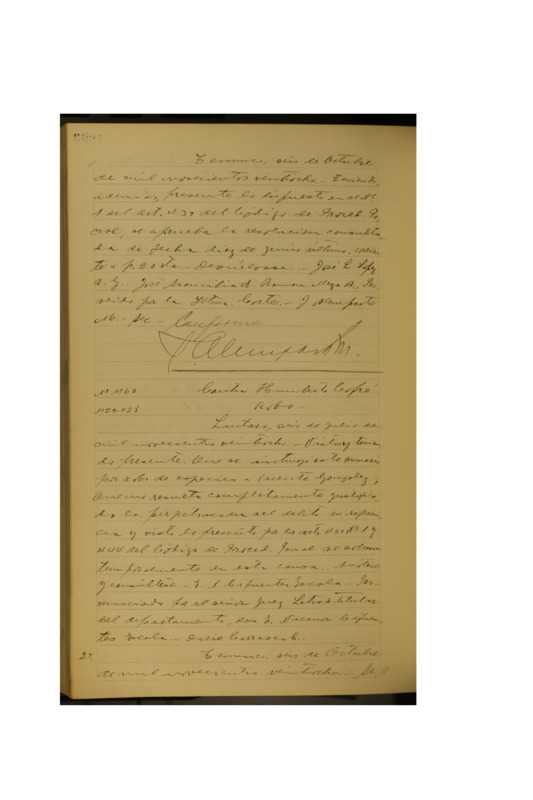 Temuco, seis de Octubre
de mil novecientos veintiocho.- Teniendo,
ademas, presente lo dispuesto en el Nº
1 del art. 439 del Código de Proced. Pe
nal, se aprueba la resolucion consulta
da de fecha diez de junio último, corrien
te a f. 20 vta.- Devuélvase.- José L. Lopez
A. G. José Arancibia A. Ramon Meza B. Pro
veido por la Iltma. Corte.- J. Alemparte
M.- Sec.- Conforme
J. Alemparte M.
Nº 1160 Contra Humberto Cofré
1129-928 Robo.-
Lautaro, seis de julio de
mil novecientos veintiocho.- Vistos y tenien
do presente: Que se instruyó este sumario
por robo de especies a Vicente Gonzalez;
Que no resulta completamente justifica
da la perpetracion del delito en referen
cia y visto lo prescrito por los arts 439 Nº 1 y
444 del Código de Proced. Penal se sobresee
temporalmente en esta causa. Anótese
y consúltese.- J. N. Cifuentes Zocala.- Pro
nunciado por el señor Juez Letrado titular
del departamento, don J. Nicanor Cifuen
tes Zocala.- Dario Carrasco C.
2ª Temuco, seis de Octubre
de mil novecientos veintiocho.- Se //